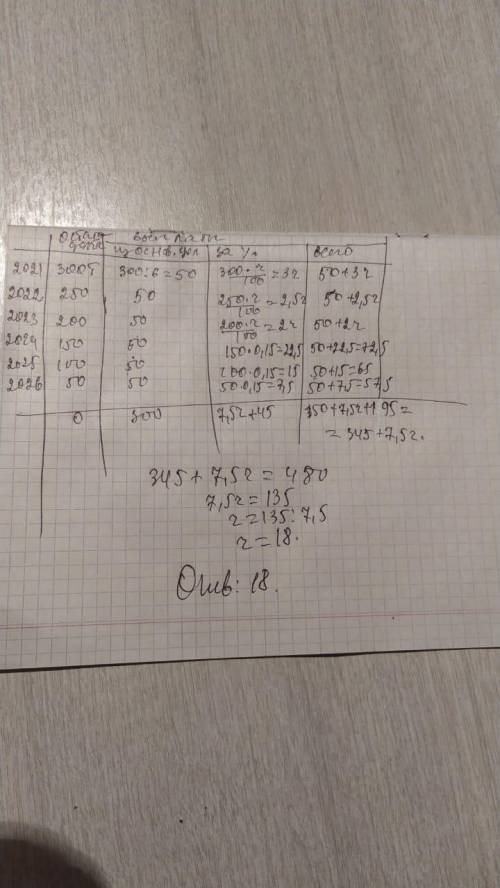 Остат. долга выплаты
из основ. дол за % всего
2021 300т 300:6=50 300·r/100=3r 50+3r
2022 250 50 250·r/100=2,5r 50+2,5r
2023 200 50 200·r/100=2r 50+2r
2024 150 50 150·0,15=22,5 50+22,5=72,5
2025 100 50 100·0,15=15 50+15=65
2026 50 50 50·0,15=7,5 50+7,5=57,5
0 300 7,5r+45 150+7,5r+195=
=345+7,5r.
345+7,5r=480
7,5r=135
r=135:7,5
r=18.
Отв: 18.